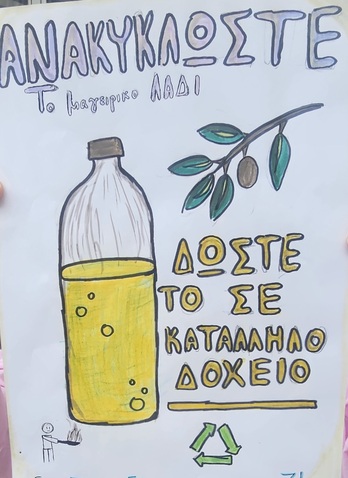 ΑΝΑΚΥΚΛΩΣΤΕ
Το μαγειρικο ΛΑΔΙ
ΔΩΣΤΕ
ΤΟ ΣΕ
ΚΑΤΑΛΛΗΛΟ
ΔΟΧΕΙΟ